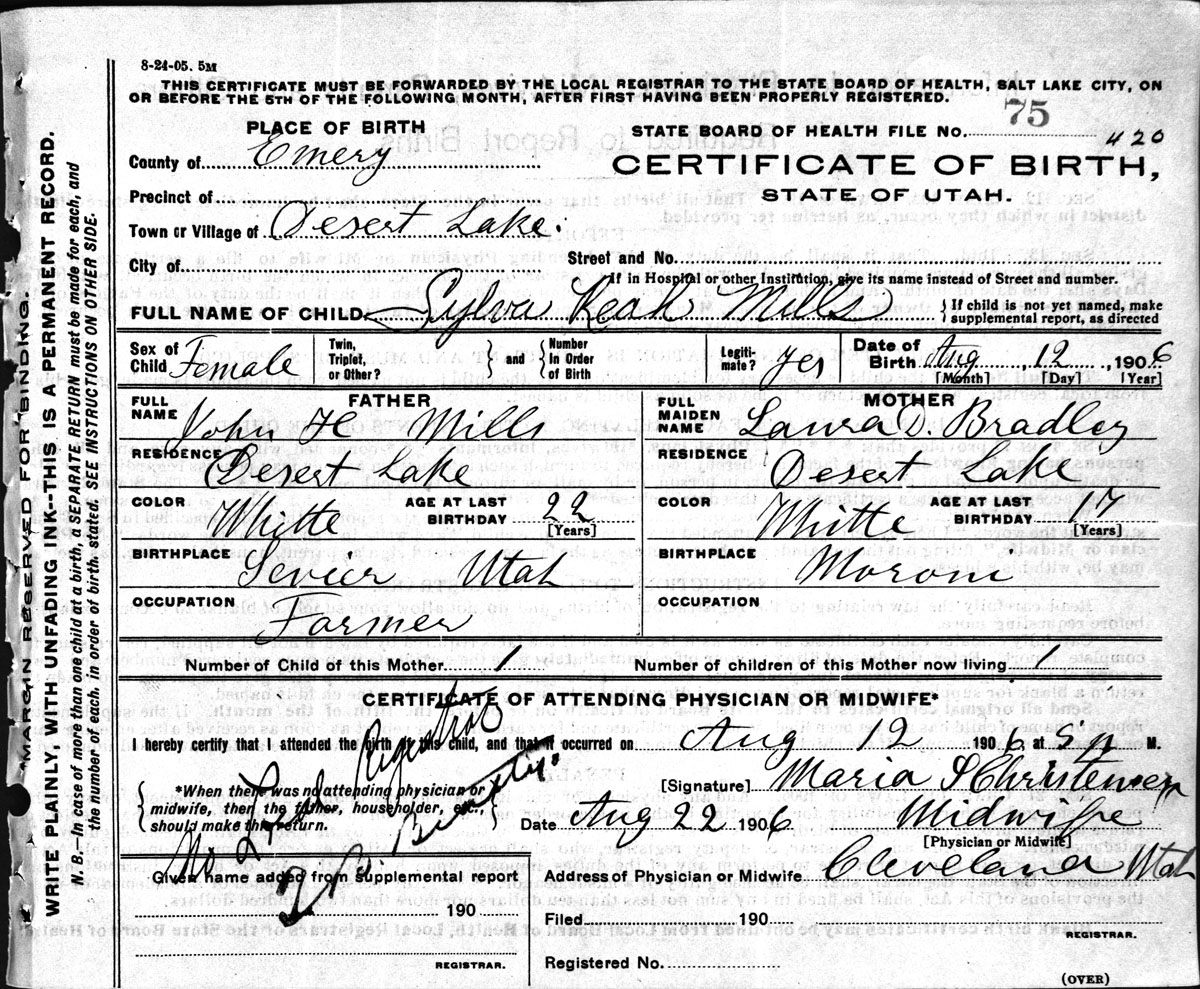 8-24-05. 5M
THIS CERTIFICATE MUST BE FORWARDED BY THE LOCAL REGISTRAR TO THE STATE BOARD OF HEALTH, SALT LAKE CITY, ON
OR BEFORE THE 5TH OF THE FOLLOWING MONTH, AFTER FIRST HAVING BEEN PROPERLY REGISTERED.
*MARGIN RESERVED FOR BINDING.
WRITE PLAINLY, WITH UNFADING INK--THIS IS A PERMANENT RECORD.
N. B.—In case of more than one child at a birth, a SEPARATE RETURN must be made for each, and
the number of each, in order of birth, stated. SEE INSTRUCTIONS ON OTHER SIDE.
PLACE OF BIRTH
County of Emery
Precinct of
Town or Village of Desert Lake.
City of
STATE BOARD OF HEALTH FILE No. 75 420
CERTIFICATE OF BIRTH,
STATE OF UTAH.
Street and No.
If in Hospital or other Institution, give its name instead of Street and number.
FULL NAME OF CHILD Sylva Reah Mills { If child is not yet named, make
supplemental report, as directed
Sex of Child Female
Twin, Triplet, or Other? } and { Number In Order of Birth
Legiti-mate? yes
Date of Birth Aug 12, 1906
[Month] [Day] [Year]
FATHER
FULL NAME John H Mills
RESIDENCE Desert Lake
COLOR Whitte AGE AT LAST BIRTHDAY 22 [Years]
BIRTHPLACE Seveir Utah
OCCUPATION Farmer
MOTHER
FULL MAIDEN NAME Laura D. Bradley
RESIDENCE Desert Lake
COLOR Whitte AGE AT LAST BIRTHDAY 17 [Years]
BIRTHPLACE Moroni
OCCUPATION
Number of Child of this Mother 1 Number of children of this Mother now living 1
CERTIFICATE OF ATTENDING PHYSICIAN OR MIDWIFE*
I hereby certify that I attended the birth of this child, and that it occurred on Aug 12 1906 at 5 p M.
{ *When there was no attending physician or
midwife, then the father, householder, etc.,
should make this return. }
No Local Registrar
[Signature] Maria S Christensen
Date Aug 22 1906 Midwife
[Physician or Midwife]
Given name added from supplemental report
190
REGISTRAR.
Address of Physician or Midwife Cleveland Utah
Filed 190
REGISTRAR.
Registered No.
(OVER)